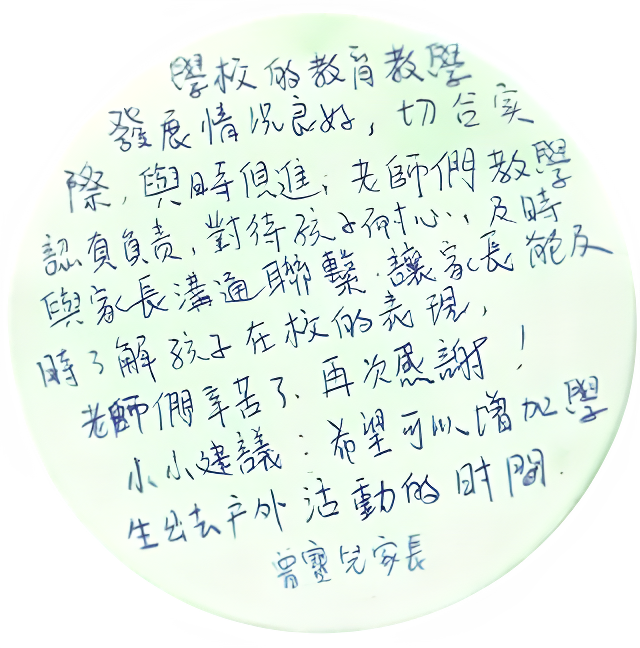 學校的教育教學
發展情況良好，切合实
際，與時俱進；老師們教學
認真負責，對待孩子耐心，及時
與家長溝通聯繫，讓家長能及
時了解孩子在校的表現，
老師們辛苦了，再次感謝！
小小建議：希望可以增加學
生出去户外活動的时間．
曾寶兒家長